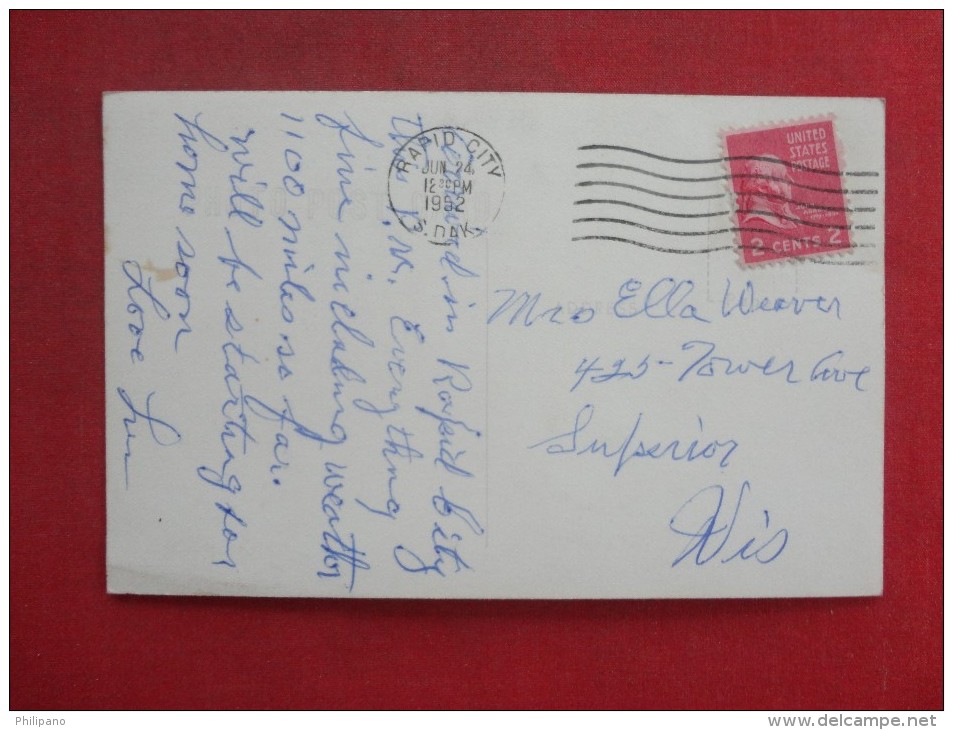 RAPID CITY
JUN 24
12 PM
1952
S. DAK.
UNITED
STATES
POSTAGE
2 CENTS 2
in Rapid City
this P.M. Everything
fine including weather
1100 miles so far.
will be starting for
home soon
Love
Mrs Ella Weaver
425- Tower Ave
Superior
Wis
Philipano
www.delcampe.net